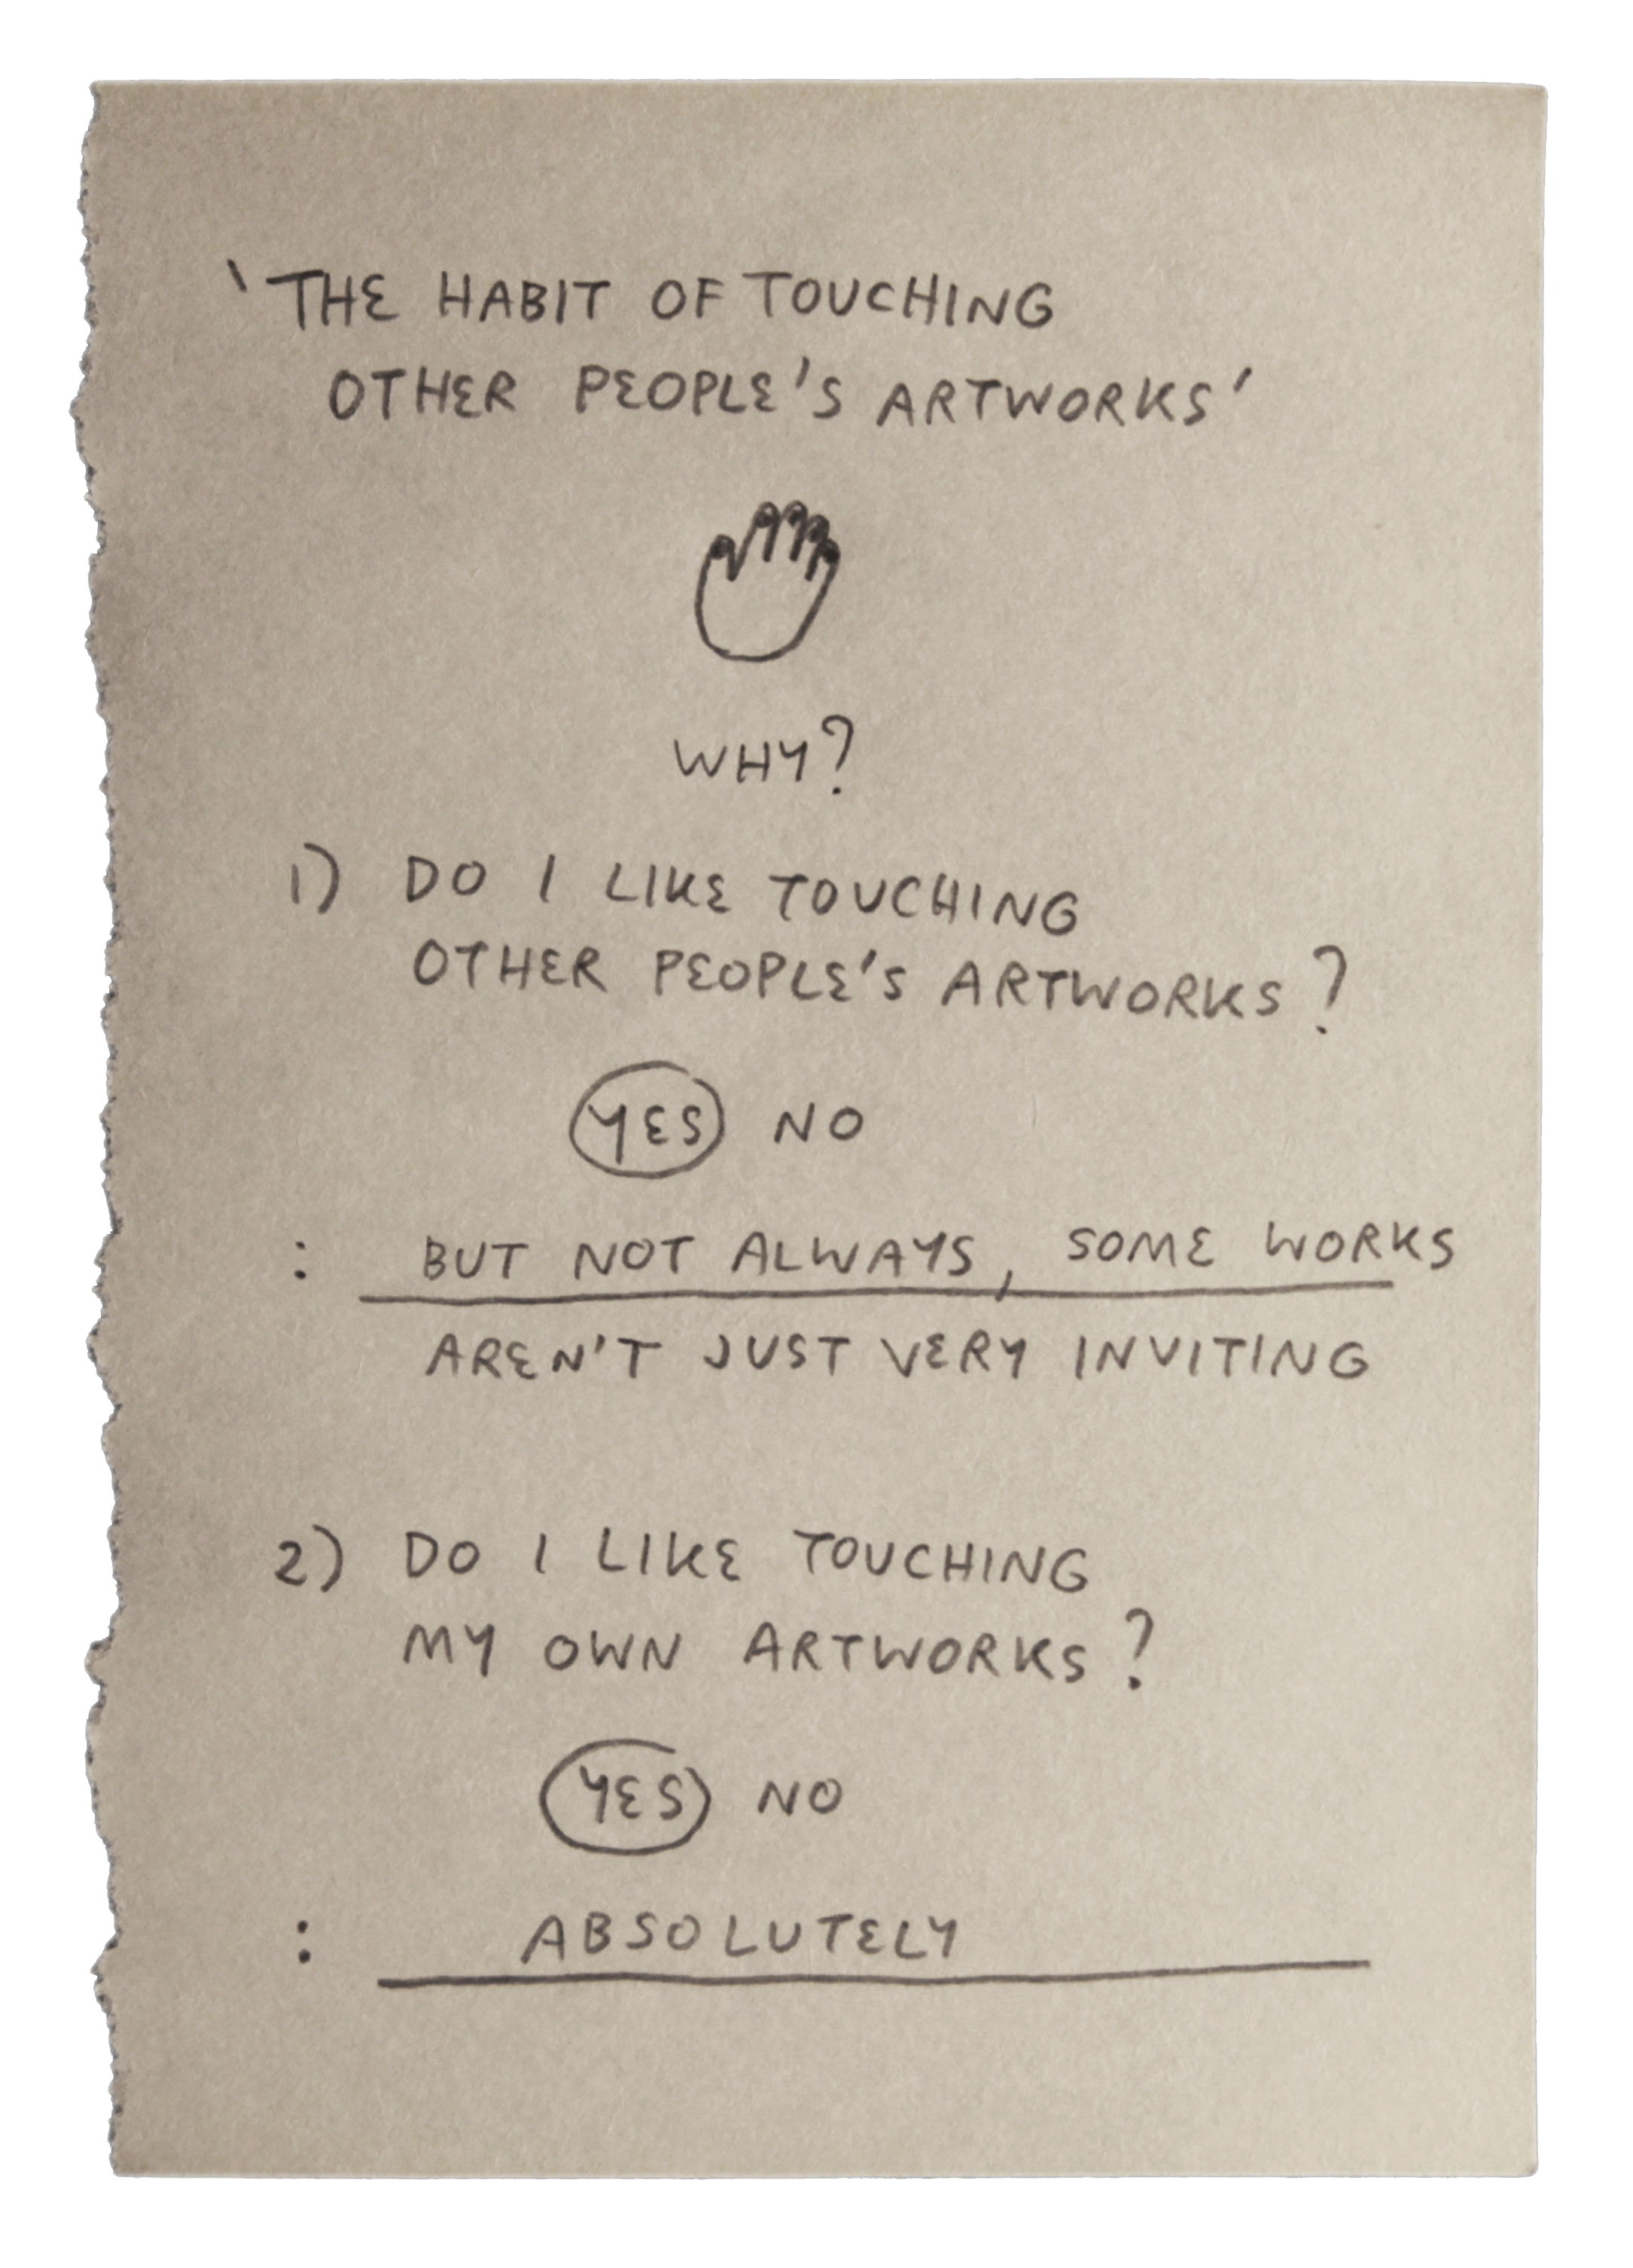 'THE HABIT OF TOUCHING
OTHER PEOPLE'S ARTWORKS'
WHY?
1) DO I LIKE TOUCHING
OTHER PEOPLE'S ARTWORKS?
YES NO
: BUT NOT ALWAYS, SOME WORKS
AREN'T JUST VERY INVITING
2) DO I LIKE TOUCHING
MY OWN ARTWORKS?
YES NO
: ABSOLUTELY